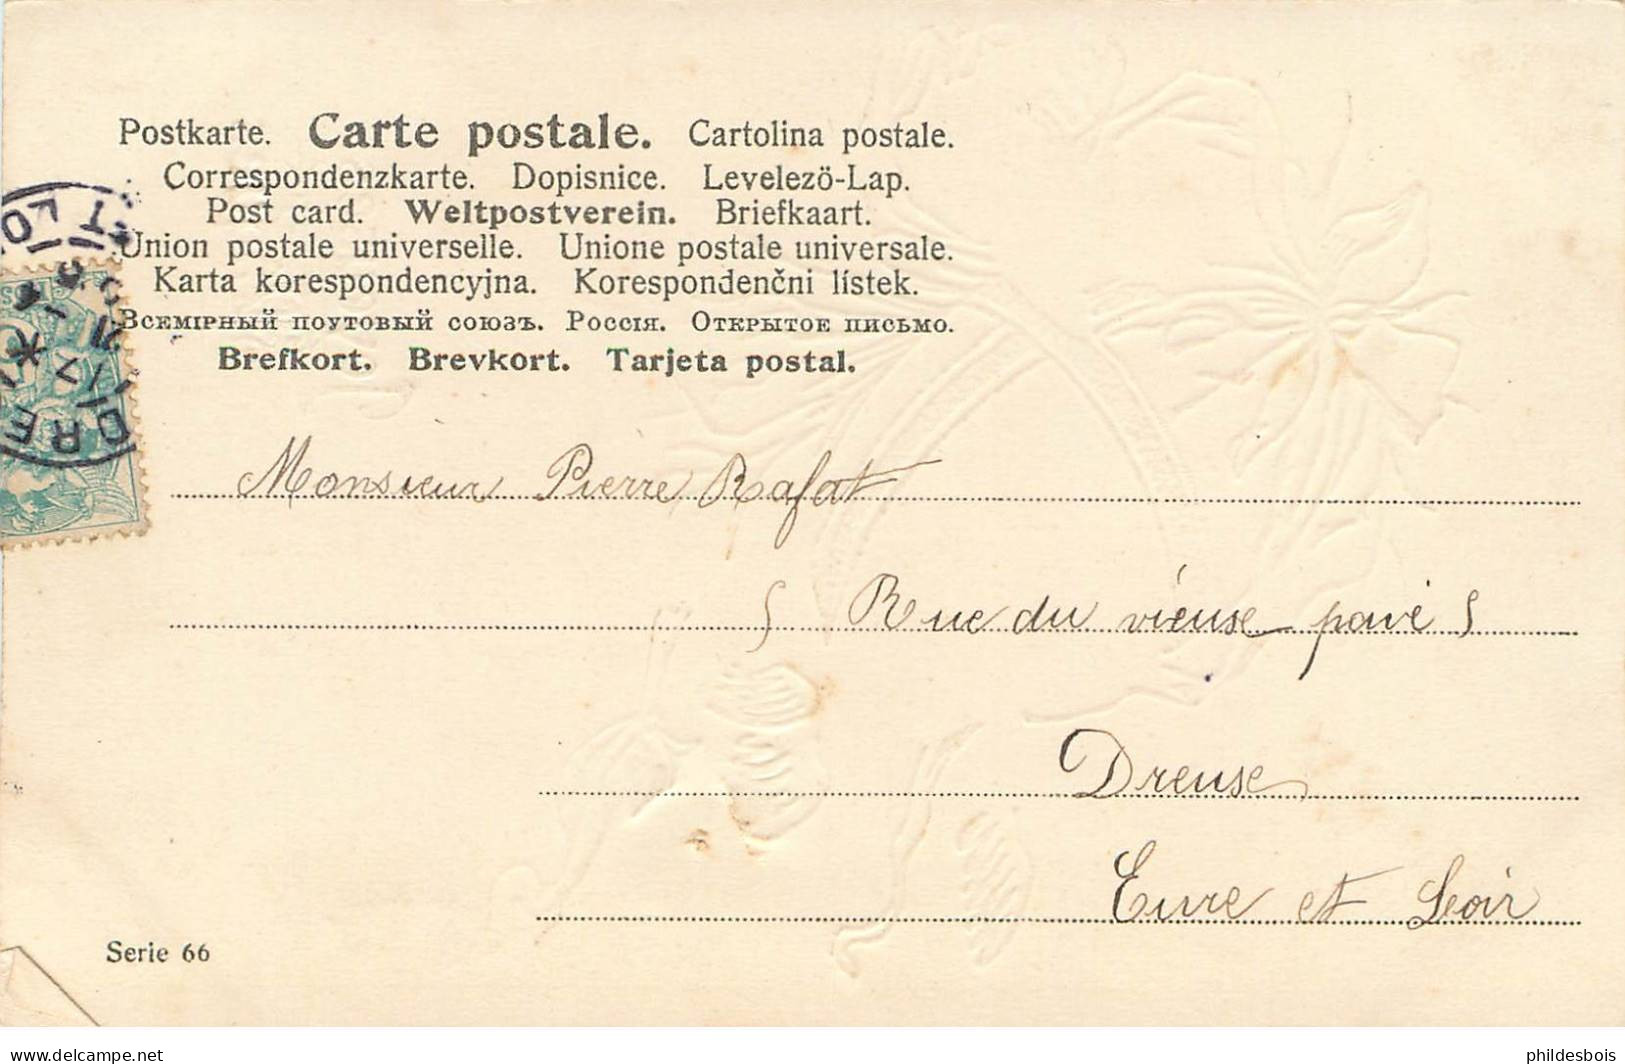 Postkarte. Carte postale. Cartolina postale.
Correspondenzkarte. Dopisnice. Levelezö-Lap.
Post card. Weltpostverein. Briefkaart.
Union postale universelle. Unione postale universale.
Karta korespondencyjna. Korespondenčni lístek.
Всемірный поутовый союзъ. Россія. Открытое письмо.
Brefkort. Brevkort. Tarjeta postal.
Monsieur Pierre Rafat
5 Rue du vieuse pavé 5
Dreuse
Eure et Loir
Serie 66
DRE
delcampe.net
phildesbois